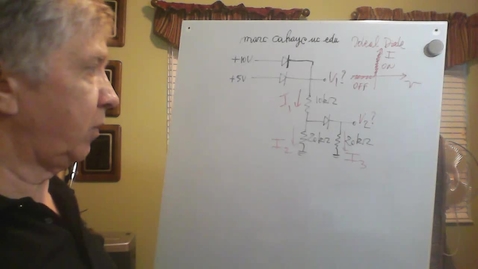 marc cahay, uc edu Ideal Diode
I
ON
OFF
V
+10V
+5V
V1?
I1
10kΩ
V2?
I2
20kΩ
20kΩ
I3